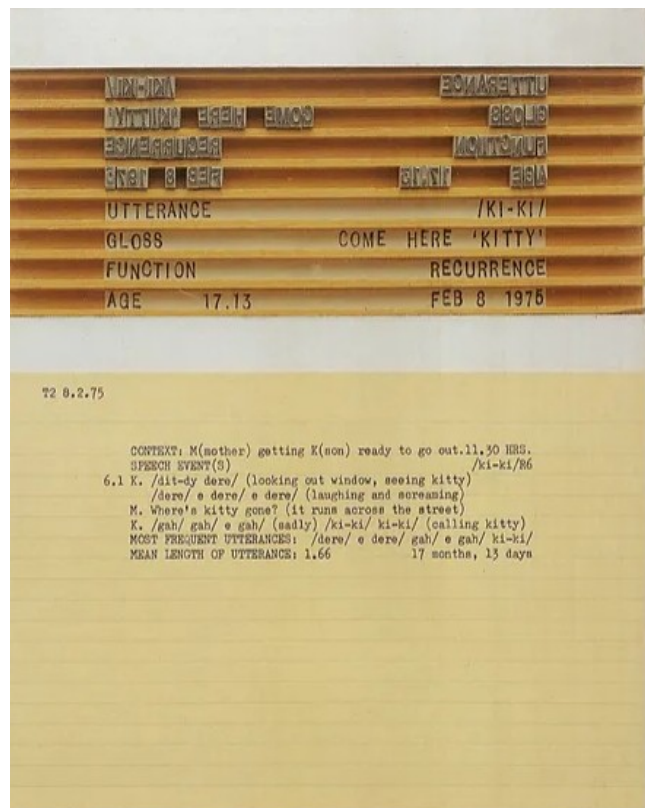 /KI-KI/ UTTERANCE
COME HERE 'KITTY' GLOSS
RECURRENCE FUNCTION
FEB 8 1975 17.13 AGE
UTTERANCE /KI-KI/
GLOSS COME HERE 'KITTY'
FUNCTION RECURRENCE
AGE 17.13 FEB 8 1975
T2 8.2.75
CONTEXT: M(mother) getting K(son) ready to go out.11.30 HRS.
SPEECH EVENT(S) /ki-ki/R6
6.1 K. /dit-dy dere/ (looking out window, seeing kitty)
/dere/ e dere/ e dere/ (laughing and screaming)
M. Where's kitty gone? (it runs across the street)
K. /gah/ gah/ e gah/ (sadly) /ki-ki/ ki-ki/ (calling kitty)
MOST FREQUENT UTTERANCES: /dere/ e dere/ gah/ e gah/ ki-ki/
MEAN LENGTH OF UTTERANCE: 1.66 17 months, 13 days